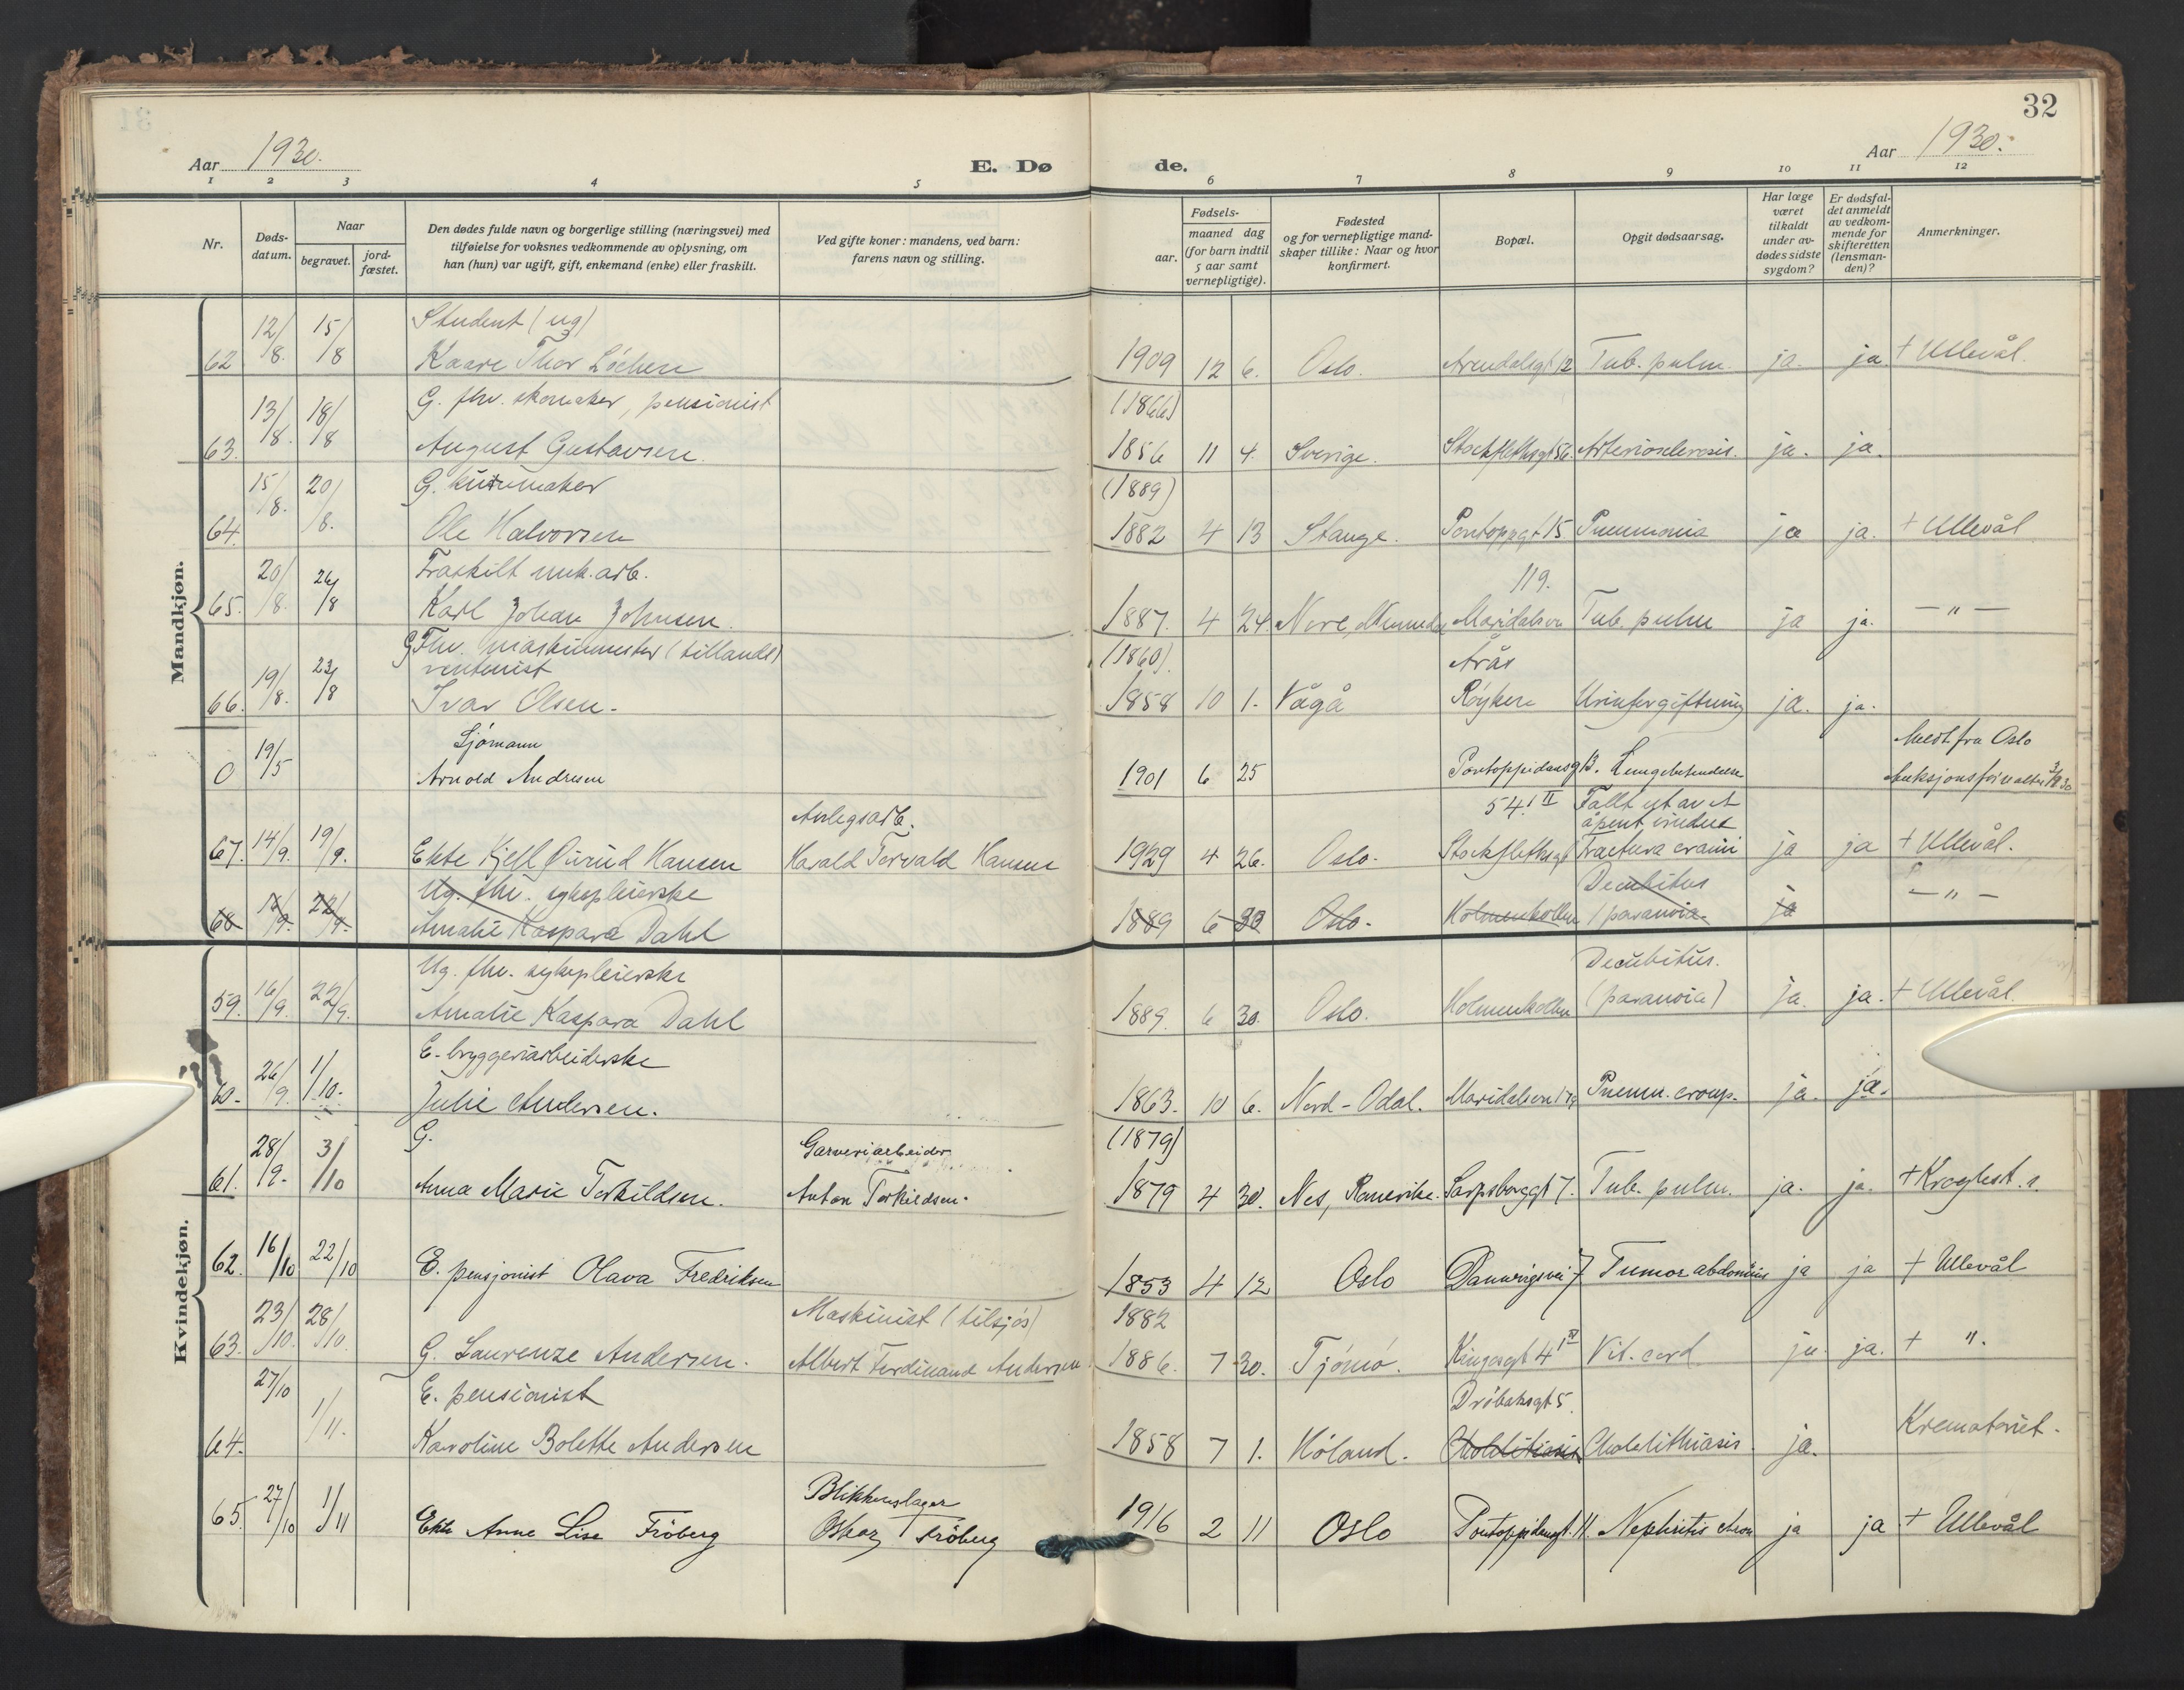 32
Aar 1930.
E. Dø
de.
Aar 1930.
1 2 3 4 5 6 7 8 9 10 11 12
Nr.
Døds-
datum.
Naar
begravet.
jord-
fæstet.
Den dødes fulde navn og borgerlige stilling (næringsvei) med
tilføielse for voksnes vedkommende av oplysning, om
han (hun) var ugift, gift, enkemand (enke) eller fraskilt.
Ved gifte koner: mandens, ved barn:
farens navn og stilling.
Fødsels-
aar.
maaned dag
(for barn indtil
5 aar samt
vernepligtige).
Fødested
og for vernepligtige mand-
skaper tillike: Naar og hvor
konfirmert.
Bopæl.
Opgit dødsaarsag.
Har læge
været
tilkaldt
under av-
dødes sidste
sygdom?
Er dødsfal-
det anmeldt
av vedkom-
mende for
skifteretten
(lensman-
den)?
Anmerkninger.
Mandkjøn.
Student (ug)
62 12/8. 15/8 Kaare Thor Löchen 1909 12 6. Oslo. Arendalsgt 12 Tub. pulm. ja. ja. + Ullevål.
G. fhv. skomaker, pensionist (1866)
63. 13/8. 18/8 August Gustavsen. 1856 11 4. Sverige. Stockflethsgt 56. Arteriosclerosis. ja. ja.
G. (1889)
64. 15/8. 20/8. Ole Halvorsen 1882 4 13 Stange. Pontoppgt 15 Pneumonia ja ja. + Ullevål
Fraskilt mek. arb. 119.
65. 20/8. 26/8 Karl Johan Johnsen. 1887. 4 24. Nore, Maridalsvn Tub. pulm ja ja. — " —
G Fhv. maskinmester (tillands) (1860). Årås
rentenist
66. 19/8. 23/8 Ivar Olsen. 1858 10 1. Vågå Röyken Urinforgiftning ja. ja.
Sjömann Meldt fra Oslo
0 19/5 Arnold Andresen 1901 6 25 Pontoppidansg 13. Lungebetendelse
Anlegsarb. 54 II Fallt ut av et
åpent vindu
67. 14/9. 19/9. Ekte Kjell Øivind Hansen Harald Torvald Hansen 1929 4 26. Oslo. Stockflethsgt Fractura cranii ja ja + Ullevål.
Ug. fhv. sykepleierske Decubitus
68 16/9. 22/9. Amalie Kaspara Dahl 1889 6 30 Oslo. Holmenkollen (paranoia. ja — " —
Kvindekjøn.
Ug. fhv. sykepleierske Decubitus.
59. 16/9. 22/9. Amalie Kaspara Dahl 1889. 6 30. Oslo. Holmenkollen (paranoia) ja. ja. + Ullevål.
E. bryggeriarbeiderske
60. 26/9. 1/10. Julie Andersen. 1863. 10 6. Nord-Odal. Maridalsvn Pneum. croup. ja. ja.
G. Garveriarbeider (1879)
61. 28/9. 3/10 Anna Marie Torkildsen. Anton Torkildsen. 1879 4 30. Nes, Romerike. Sarpsborggt 7. Tub. pulm. ja. ja.
62. 16/10 22/10 E. pensjonist Olava Fredriksen 1853 4 12 Oslo 7 Tumor abdominis ja ja + Ullevål
Maskinist (tilsjös) 1882
63. 23/10. 28/10. G. Laurenze Andersen. Albert Ferdinand Andersen 1886. 7 30. Tjömö. Kingosgt 4 IV Vit. cord. ja ja. + ".
E. pensionist Dröbaksgt 5.
64. 27/10 1/11. Karoline Bolette Andersen 1858 7 1. Höland. Cholelithiasis Cholelithiasis ja. Krematoriet.
Blikkenslager
65. 27/10 1/11 Ekte Anne Lise Fröberg Oskar Fröberg 1916 2 11 Oslo Pontoppidangt. 11. Nephritis chron ja ja + Ullevål